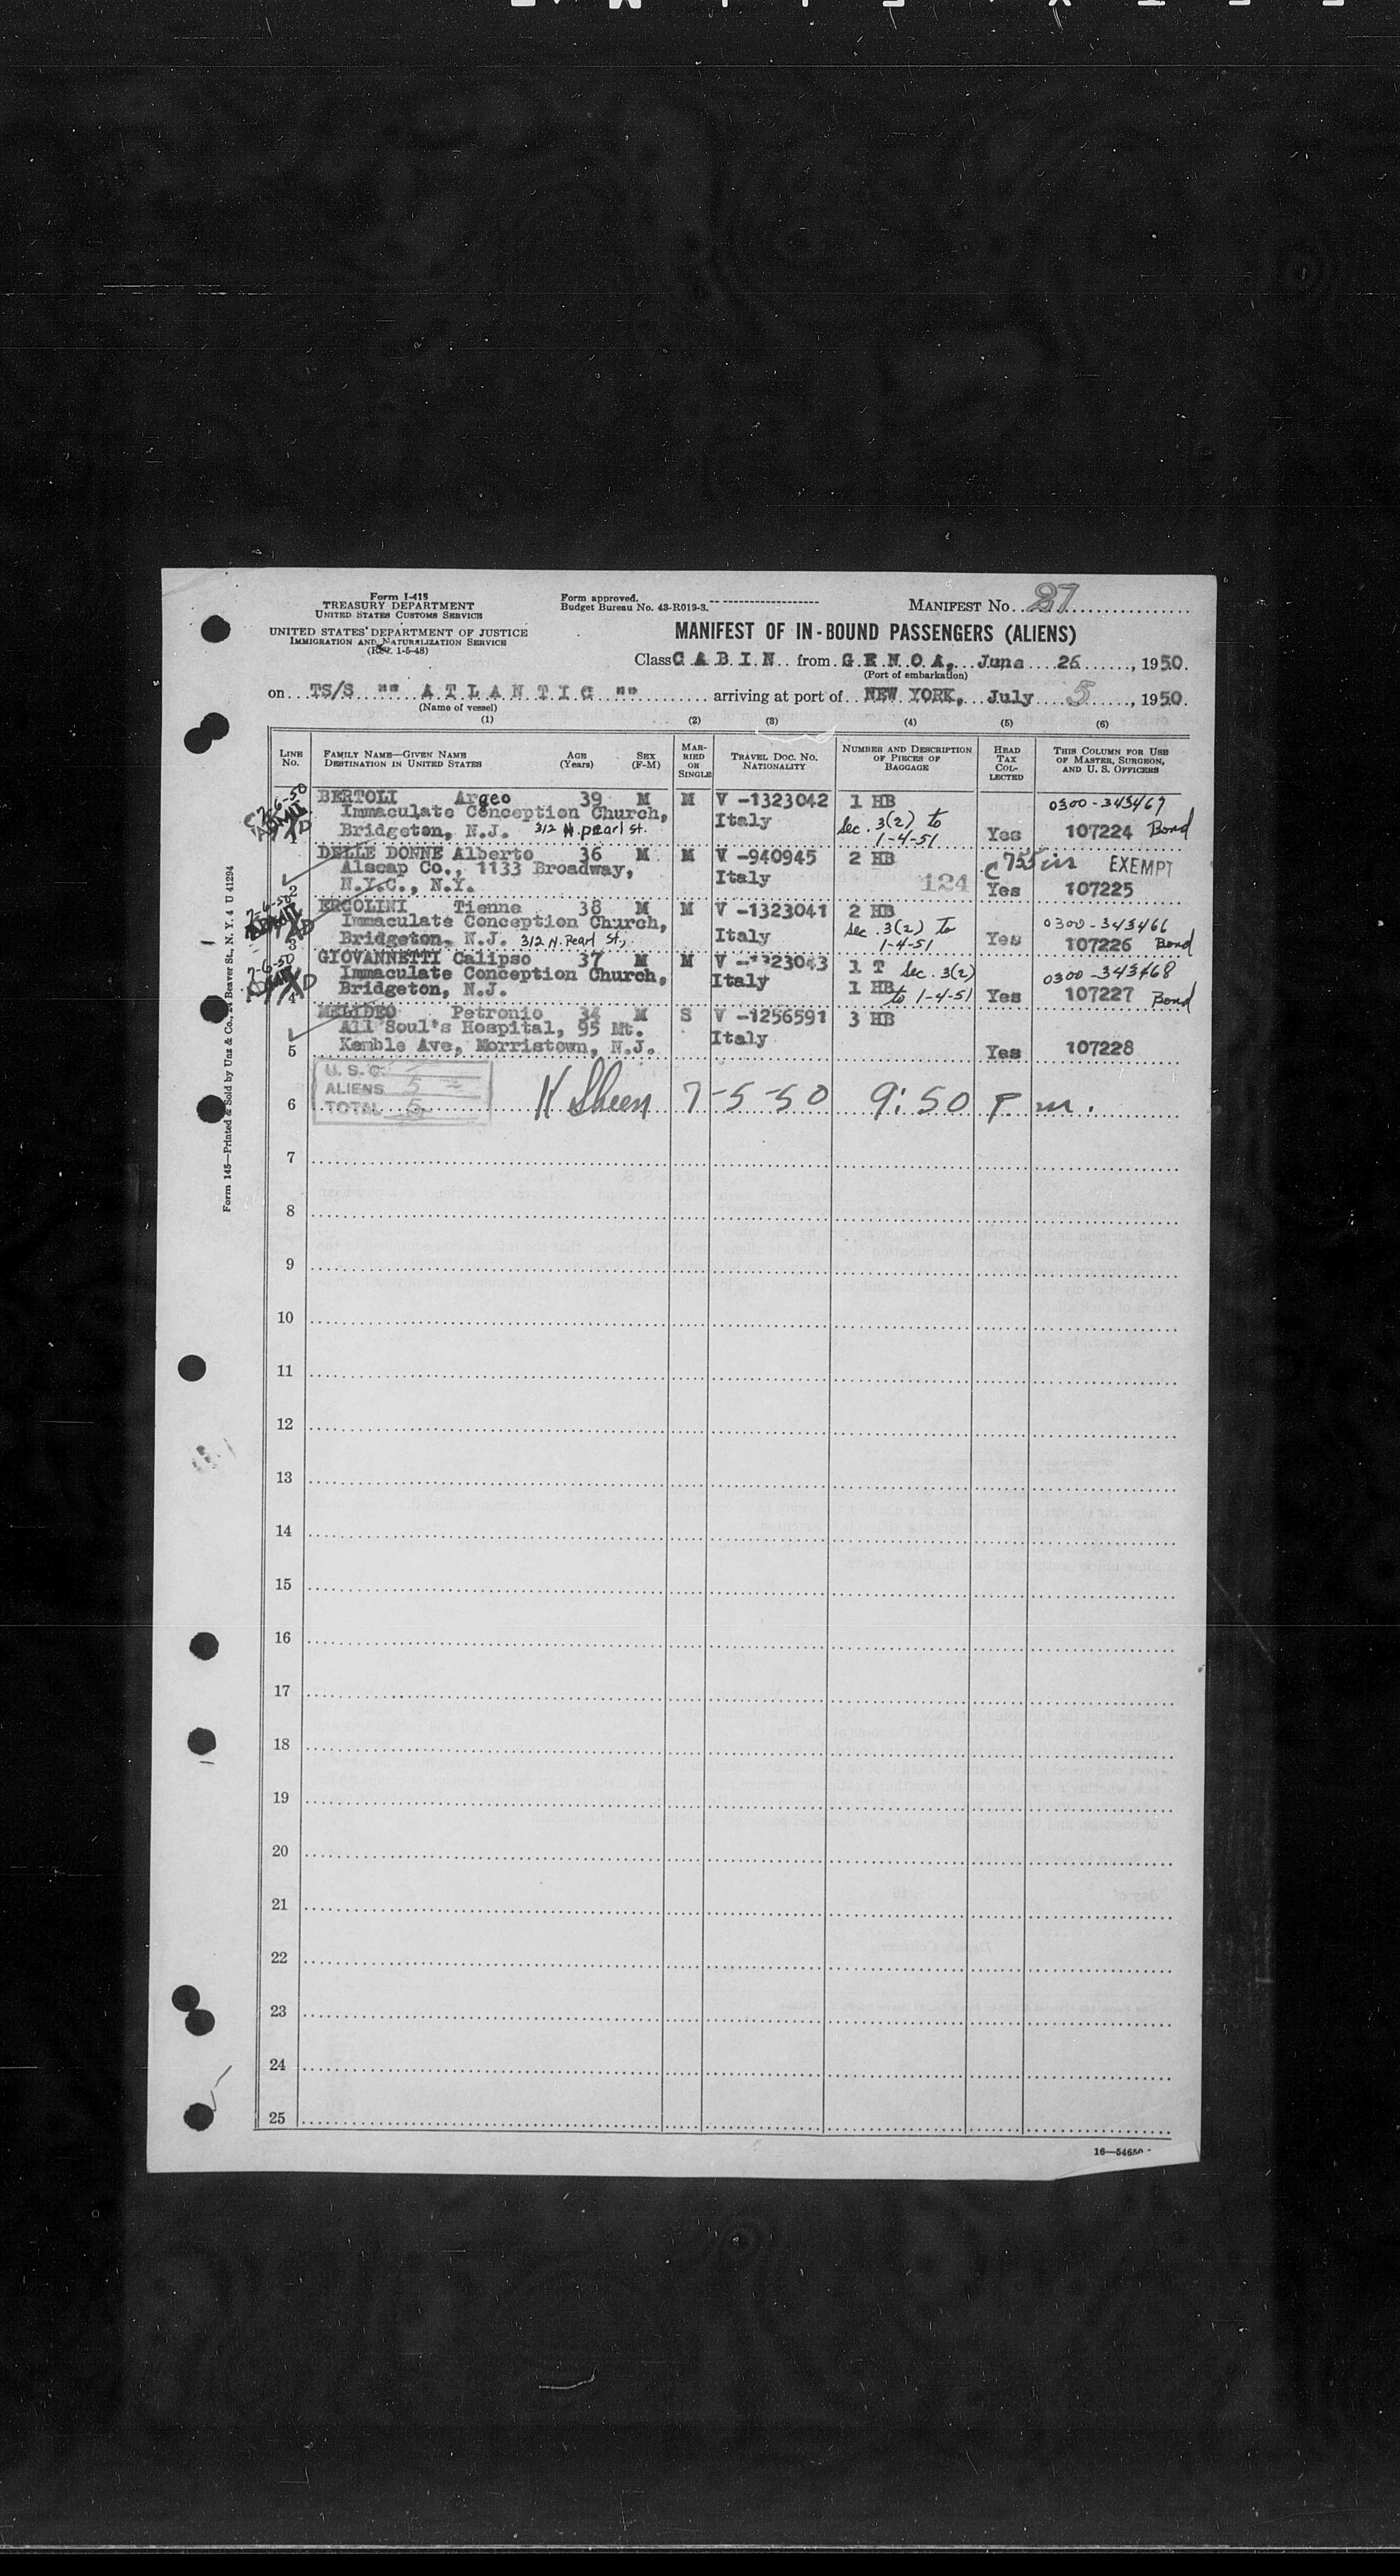 Form I-415
TREASURY DEPARTMENT
UNITED STATES CUSTOMS SERVICE
UNITED STATES DEPARTMENT OF JUSTICE
IMMIGRATION AND NATURALIZATION SERVICE
(Rev. 1-5-48)
Form approved.
Budget Bureau No. 43-R019-3.
MANIFEST No. 27
MANIFEST OF IN-BOUND PASSENGERS (ALIENS)
Class C A B I N from G E N O A, June 26, 1950.
(Port of embarkation)
on TS/S "" A T L A N T I C "" arriving at port of NEW YORK, July 5, 1950.
(Name of vessel)
(1) (2) (3) (4) (5) (6)
LINE No. FAMILY NAME—GIVEN NAME DESTINATION IN UNITED STATES AGE (Years) SEX (F-M) MARRIED OR SINGLE TRAVEL DOC. NO. NATIONALITY NUMBER AND DESCRIPTION OF PIECES OF BAGGAGE HEAD TAX COLLECTED THIS COLUMN FOR USE OF MASTER, SURGEON, AND U. S. OFFICERS
7-6-50 BERTOLI Argeo 39 M M V -1323042 1 HB 0300-343467
Immaculate Conception Church, Italy Sec. 3(2) to
1 Bridgeton, N.J. 312 N. pearl st. 1-4-51 Yes 107224 Bond
DELLE DONNE Alberto 36 M M V -940945 2 HB EXEMPT
Alscap Co., 1133 Broadway, Italy 124
2 N.Y.C., N.Y. Yes 107225
7-6-50 ERCOLINI Tienne 38 M M V -1323041 2 HB 0300-343466
Immaculate Conception Church, Italy Sec. 3(2) to
3 Bridgeton, N.J. 312 N. Pearl St., 1-4-51 Yes 107226 Bond
7-6-50 GIOVANNETTI Calipso 37 M M 1 T Sec. 3(2) 0300-343468
Immaculate Conception Church, Italy
4 Bridgeton, N.J. 1 HB to 1-4-51 Yes 107227 Bond
MELIDEO Petronio 34 M S V -1256591 3 HB
All Soul's Hospital, 95 Mt. Italy
5 Kemble Ave, Morristown, N.J. Yes 107228
U. S. C.
ALIENS 5
6 TOTAL 5 K Sheen 7-5-50 9:50 P m.
7
8
9
10
11
12
13
14
15
16
17
18
19
20
21
22
23
24
25
Form 145—Printed & Sold by Unz & Co., Beaver St., N. Y. 4 U 41294